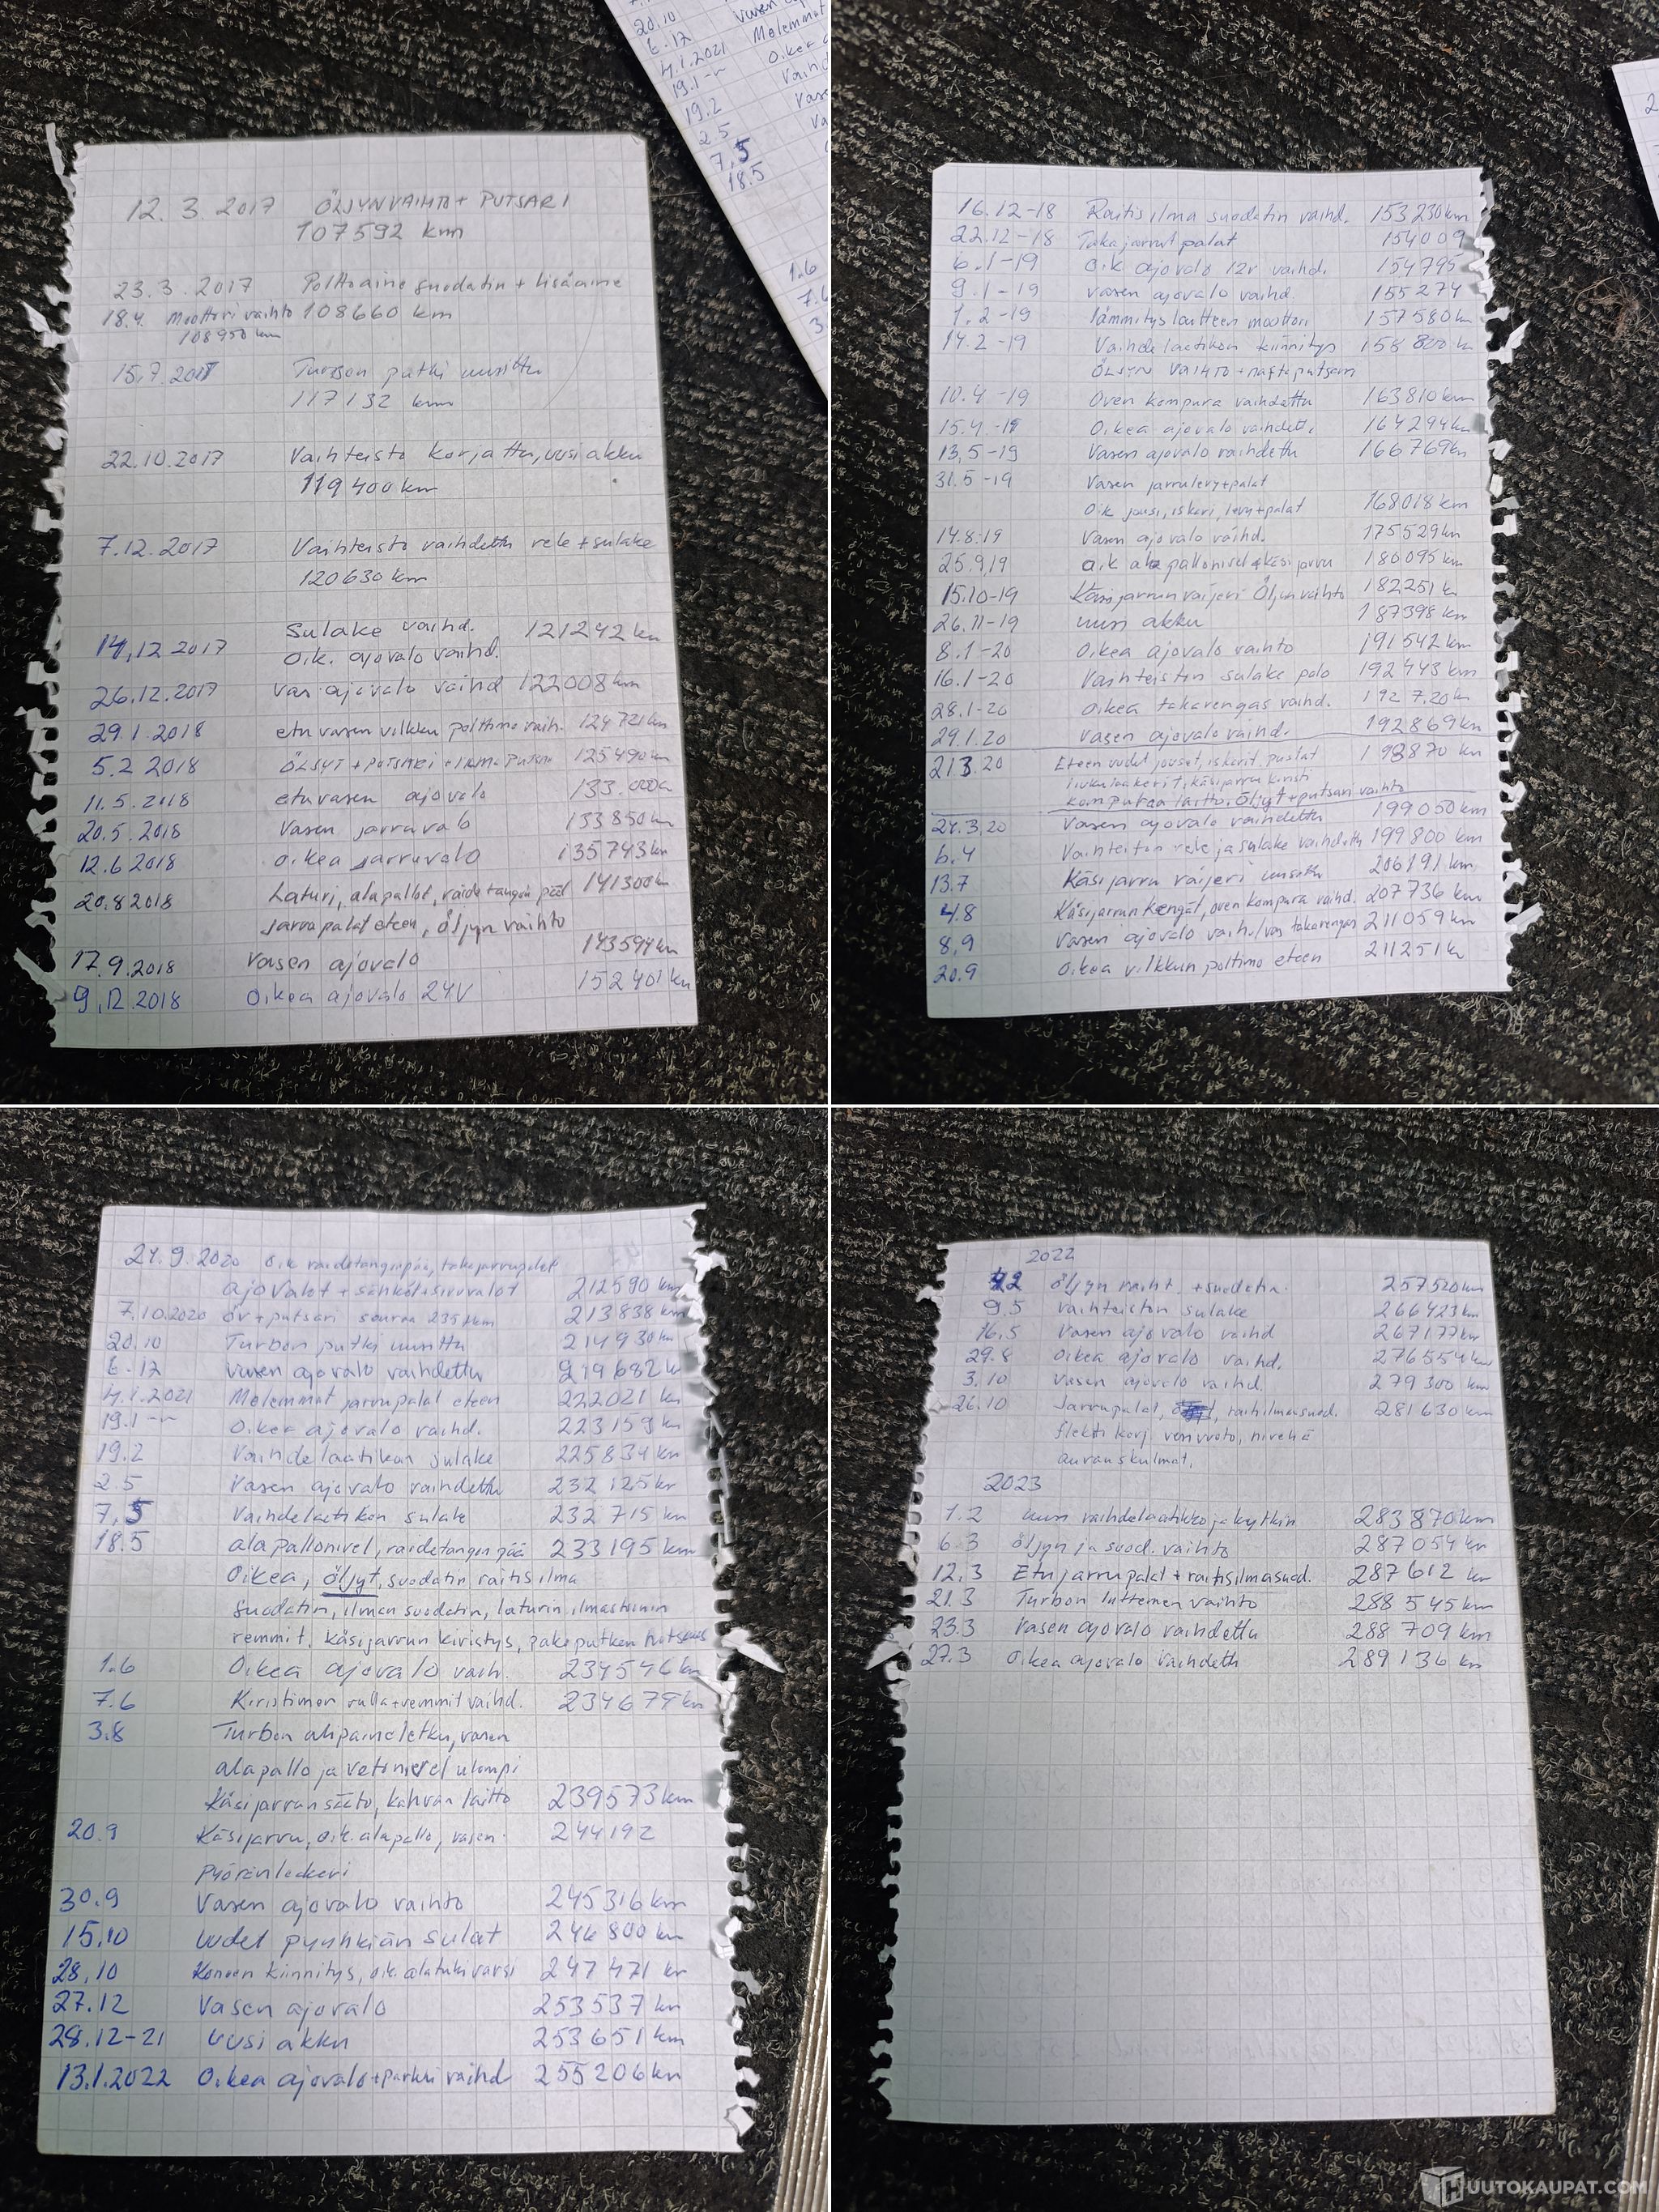 20.10
6.12 Molemmat
4.1.2021
19.1 -"-
19.2
2.5
7.5
18.5
1.6
3
12.3 2017 ÖLJYNVAIHTO + PUTSARI
107592 km
23.3.2017 Polttoaine suodatin + lisäaine
18.4. Moottori vaihto 108660 km
108950 km
15.7.2017 Turpon putki uusittu
117132 km
22.10.2017 Vaihteisto korjattu, uusi akku
119400 km
7.12.2017 Vaihteisto vaihdettu rele + sulake
120630 km
14.12 2017 Sulake vaihd. 121242 km
Oik. ajovalo vaihd.
26.12.2017 Vas. ajovalo vaihd 122008 km
29.1.2018 etu vasen vilkku polttimo vaih. 124721 km
5.2 2018 ÖLJYT + PUTSARI + ILMAPUTSARI 125490 km
11.5.2018 etuvasen ajovalo 133.000
20.5 2018 Vasen jarruvalo 133850 km
12.6 2018 oikea jarruvalo 135743 km
20.8 2018 Laturi, alapallot, raidetangon pää 141300 km
Jarrupalat eteen, öljyn vaihto
17.9.2018 Vasen ajovalo 143594 km
9.12.2018 Oikea ajovalo 24V 152401 km
16.12-18 Raitisilma suodatin vaihd. 153230 km
22.12-18 Takajarrut palat 154009
6.1-19 oik ajovalo 12v vaihd. 154795
9.1-19 vasen ajovalo vaihd. 155274
1.2-19 lämmityslaitteen moottori 157580 km
14.2-19 Vaihdelaatikon kiinnitys 158800 k
ÖLJYN VAIHTO + naftaputsari
10.4-19 Oven kompura vaihdettu 163810 km
15.4.-19 Oikea ajovalo vaihdett. 164294 km
13.5-19 Vasen ajovalo vaihdettu 166769 km
31.5-19 Vasen jarrulevy+palat
oik jousi, iskari, levy+palat 168018 km
14.8.19 Vasen ajovalo vaihd. 175529 km
25.9.19 oik ala pallonivel + käsijarru 180095 km
15.10-19 Käsijarrun vaijeri Öljynvaihto 182251 k
26.11-19 uusi akku 187398 km
8.1-20 Oikea ajovalo vaihto 191542 km
16.1-20 Vaihteiston sulake palo 192443 km
28.1-20 oikea takarengas vaihd. 192720 k
29.1.20 vasen ajovalo vaihd. 192869 km
21.3.20 Eteen uudet jouset, iskarit, puslat 198870 km
liukulaakerit, käsijarru kiristi
kompuraa laitto. Öljyt + putsari vaihto
24.3.20 Vasen ajovalo vaihdettu 199050 km
6.4 Vaihteiston rele ja sulake vaihdettu 199800 km
13.7 Käsijarru vaijeri uusittu 206191 km
4.8 Käsijarrun kengät, oven kompura vaihd. 207736 km
8.9 Vasen ajovalo vaih./vas takarengas 211059 km
20.9 Oikea vilkkun polttimo eteen 211251 k
24.9.2020 Oik raidetangonpää, takajarrupalat
ajovalot + sähköt + sivuvalot 212590 km
7.10.2020 öv + putsari seuraa 235tkm 213838 km
20.10 Turbon putki uusittu 214930 km
6.12 vasen ajovalo vaihdettu 219682 k
4.1.2021 Molemmat jarrupalat eteen 222021 km
19.1 -"- Oikea ajovalo vaihd. 223159 km
19.2 Vaihdelaatikon sulake 225834 km
2.5 Vasen ajovalo vaihdettu 232125 km
7.5 Vaihdelaatikon sulake 232715 km
18.5 alapallonivel, raidetangon pää 233195 km
Oikea, öljyt, suodatin raitisilma
suodatin, ilman suodatin, laturin ilmastoinnin
remmit, käsijarrun kiristys, pakoputken
1.6 Oikea ajovalo vaih. 234546 km
7.6 Kiristimen rulla + remmit vaihd. 234679 km
3.8 Turbon alipaineletku, vasen
alapallo ja vetonivel ulompi
Käsijarrun säätö, kahvan laitto 239573 km
20.9 Käsijarru, oik. alapallo, vasen 244192
Pyöränlaakeri
30.9 Vasen ajovalo vaihto 245316 km
15.10 Uudet pyyhkiän sulat 246800 km
28.10 Koneen kiinnitys, oik. alatukivarsi 247471 km
27.12 Vasen ajovalo 253537 km
28.12-21 Uusi akku 253651 km
13.1.2022 Oikea ajovalo + parkki vaihd 255206 km
2022
2 öljyn vaiht. + suodatin. 257520 km
9.5 vaihteiston sulake 266423 km
16.5 Vasen ajovalo vaihd 267177 km
29.8 oikea ajovalo vaihd. 276554 km
3.10 vasen ajovalo vaihd. 279300 km
26.10 Jarrupalat, raitilmasuod. 281630 km
flekti korj. vesivuoto, niveliä
aurauskulmat.
2023
1.2 uusi vaihdelaatikko ja kytkin 283870 km
6.3 öljyn ja suod. vaihto 287054 km
12.3 Etujarrupalat + raitisilmasuod. 287612 km
21.3 Turbon luttemen vaihto 288545 km
23.3 Vasen ajovalo vaihdettu 288709 km
27.3 Oikea ajovalo vaihdettu 289136 km
HUUTOKAUPAT.COM